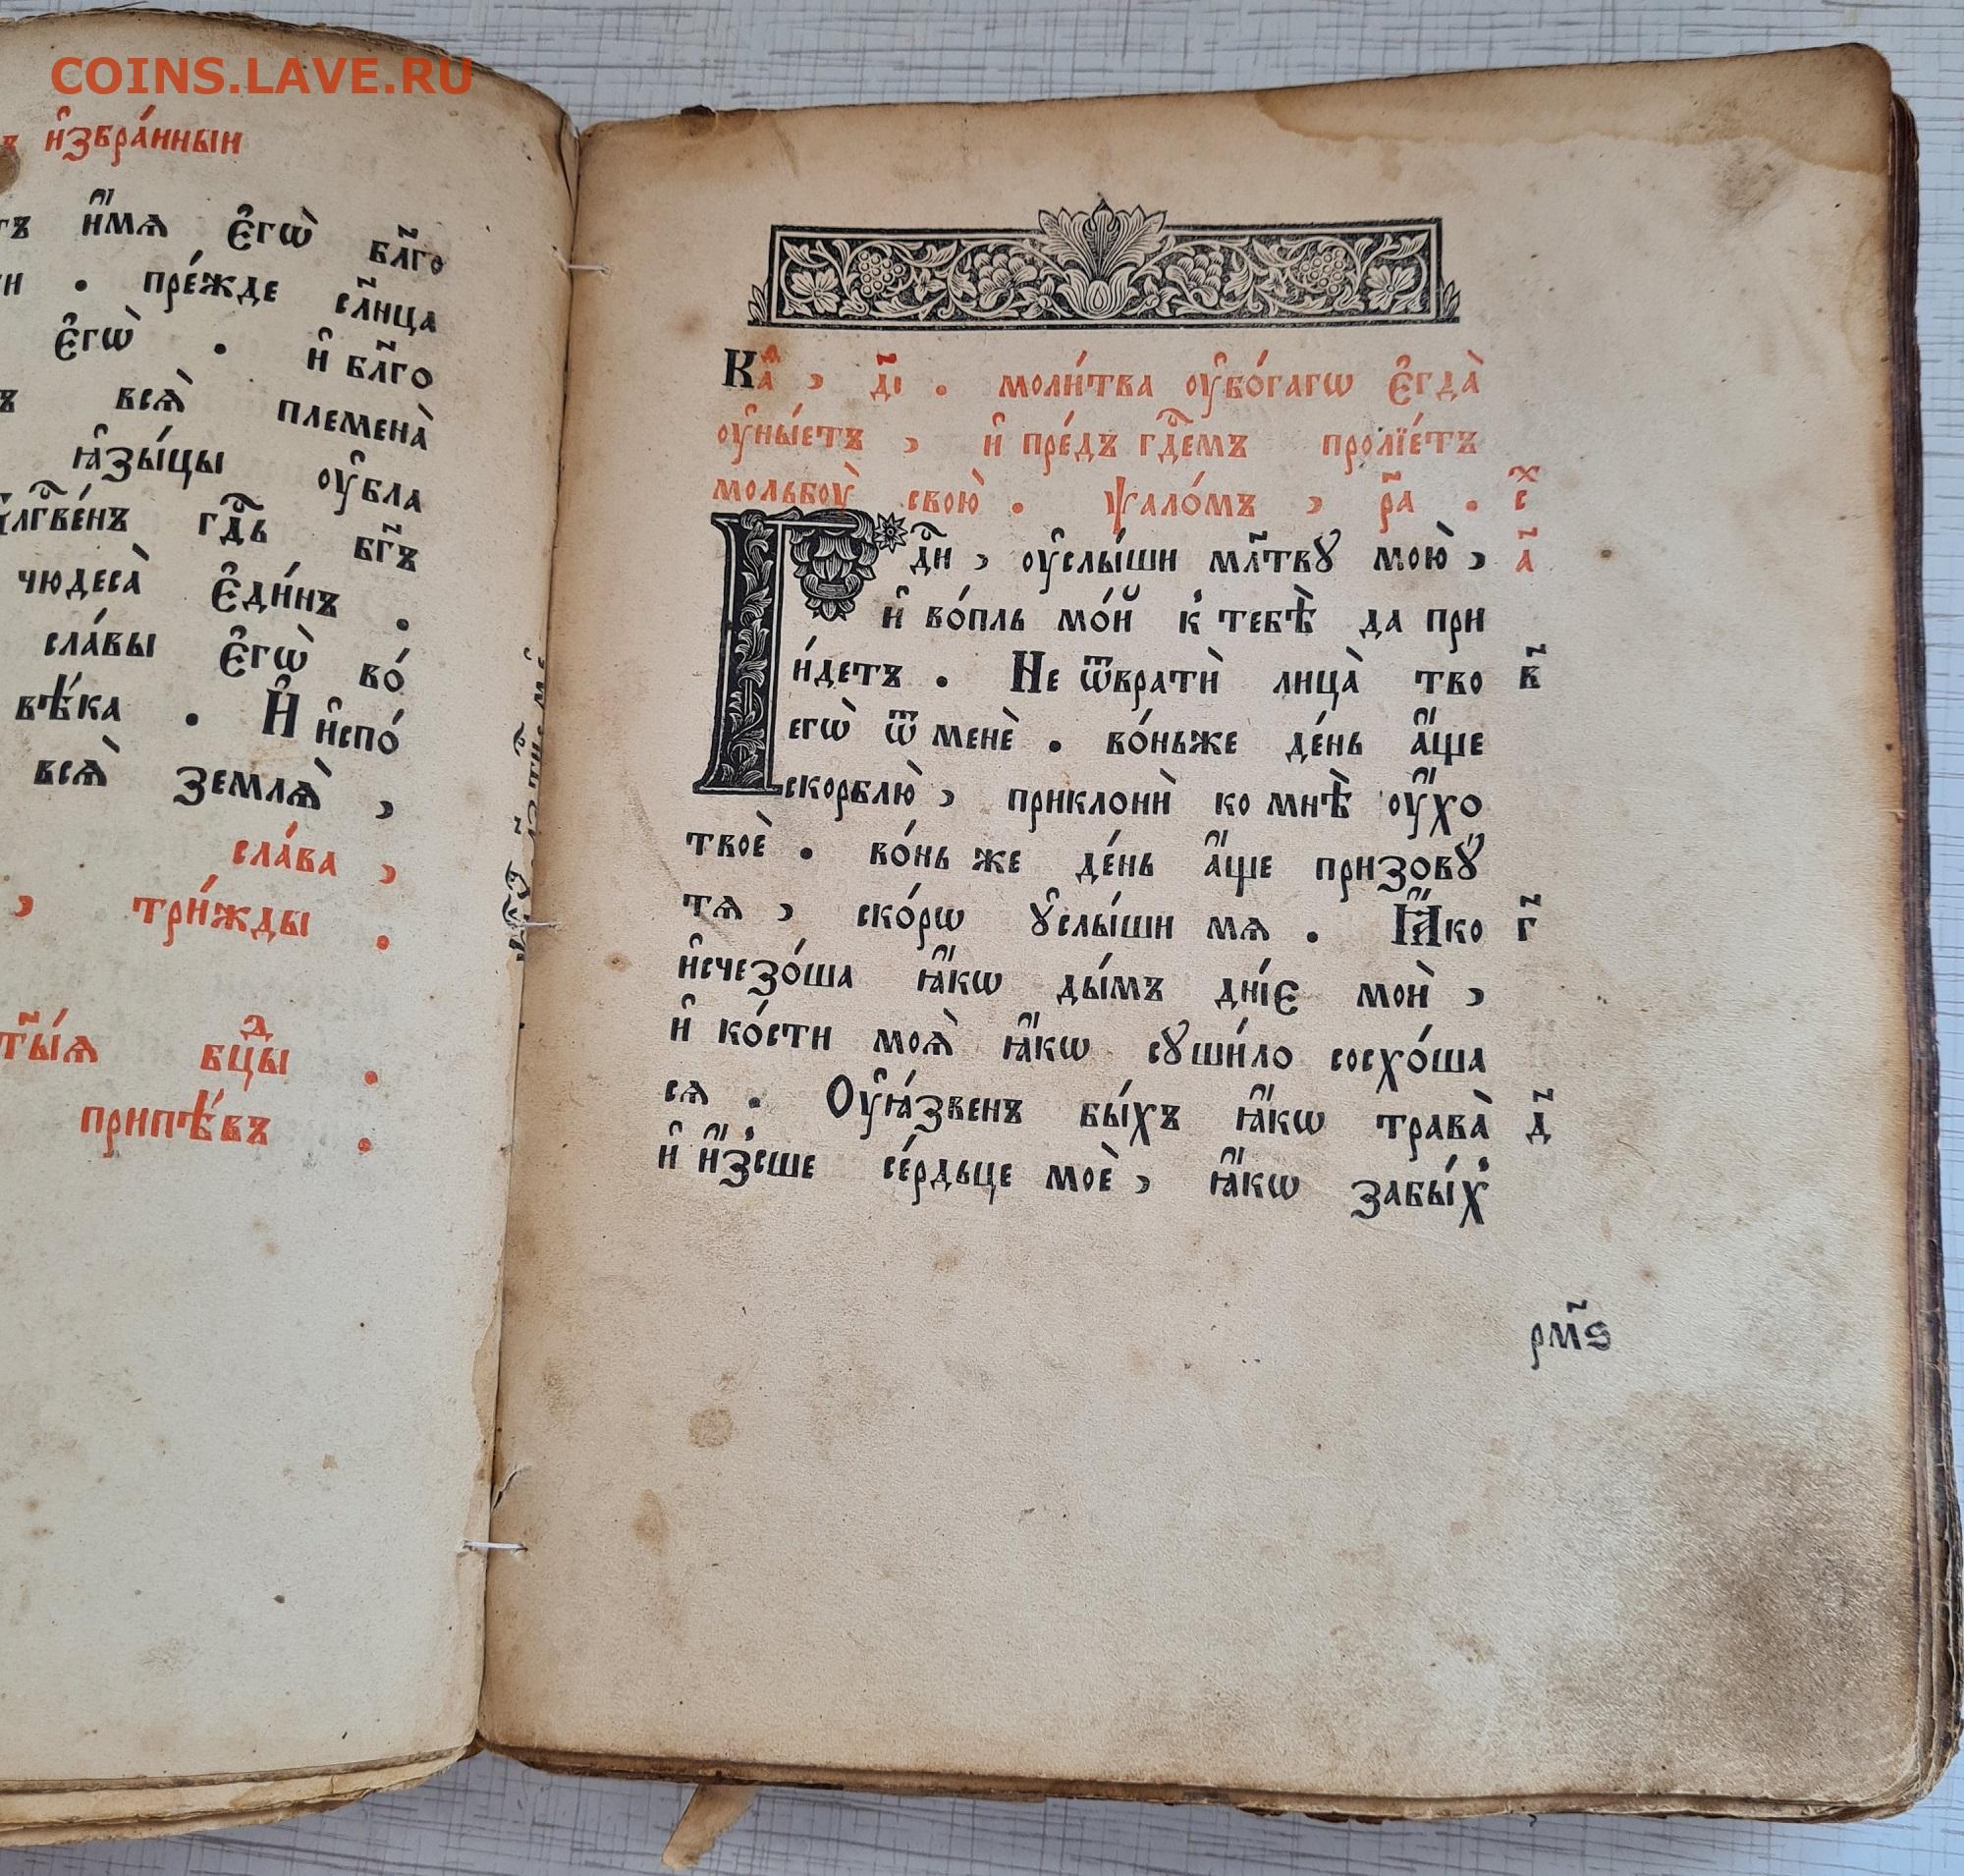 COINS.LAVE.RU
и҆збра́нныи
и҆́мѧ є҆гѡ̀ бл҃го
. пре́жде сл҃нца
є҆гѡ̀ . и҆ бл҃го
всѧ̀ племена̀
ꙗ҆зы́цы оу҆бла
гдⷭ҇ь бг҃ъ
чюдеса̀ є҆ди́нъ .
сла́вы є҆гѡ̀ во́
вѣ́ка . И҆ и҆спо́
всѧ̀ землѧ̀ ,
сла́ва ,
, три́жды .
бцⷣы .
припѣ́въ .
Каⷴ҇ , д҃і . моли́тва оу҆бо́гагѡ є҆гда̀
оу҆ны́етъ , и҆ пре́дъ гдⷭ҇емъ пролїе́тъ
мольбоу̀ свою̀ . ѱало́мъ , р҃а . сⷯ
Гдⷭ҇и , оу҆слы́ши мл҃твꙋ мою̀ , а҃
и҆ во́пль мо́й к̾ тебѣ̀ да при
и́детъ . Не ѿвратѝ лица̀ тво в҃
егѡ̀ ѿ менѐ . во́ньже де́нь а҆́ще
скорблю̀ , приклонѝ ко мнѣ̀ оу҆́хо
твоѐ . во́нь же де́нь а҆́ще призовꙋ̀
тѧ , ско́рѡ ꙋ҆слы́ши мѧ . Ꙗ҆́ко г҃
и҆счезо́ша ꙗ҆́кѡ ды́мъ дні́є моѝ ,
и҆ ко́сти моѧ̀ ꙗ҆́кѡ сꙋши́ло сосхо́ша
сѧ . Оу҆ꙗ́звенъ бы́хъ ꙗ҆́кѡ трава̀ д҃
и҆ и҆́з̾сше се́рдьце моѐ , ꙗ҆́кѡ забы́х̾
рм҃ѕ